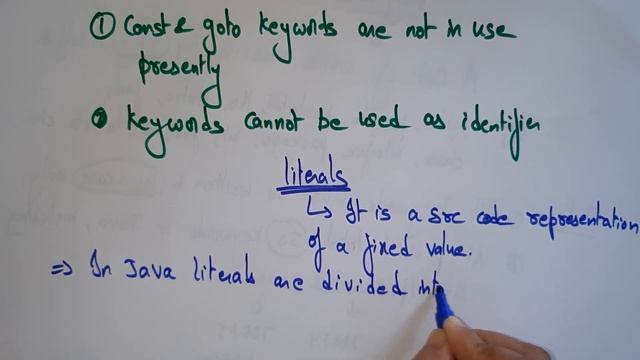 ① Const & goto keywords are not in use
presently
② keywords cannot be used as identifier
literals
↳ It is a src code representation
of a fixed value.
⇒ In Java literals are divided into